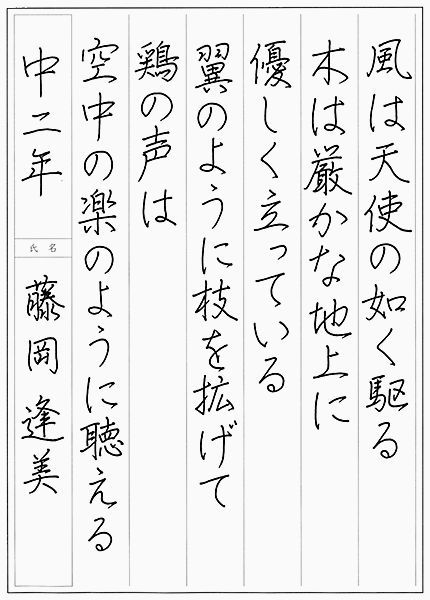 風は天使の如く駆る
木は厳かな地上に
優しく立っている
翼のように枝を拡げて
鶏の声は
空中の楽のように聴える
中二年
氏名
藤岡逢美